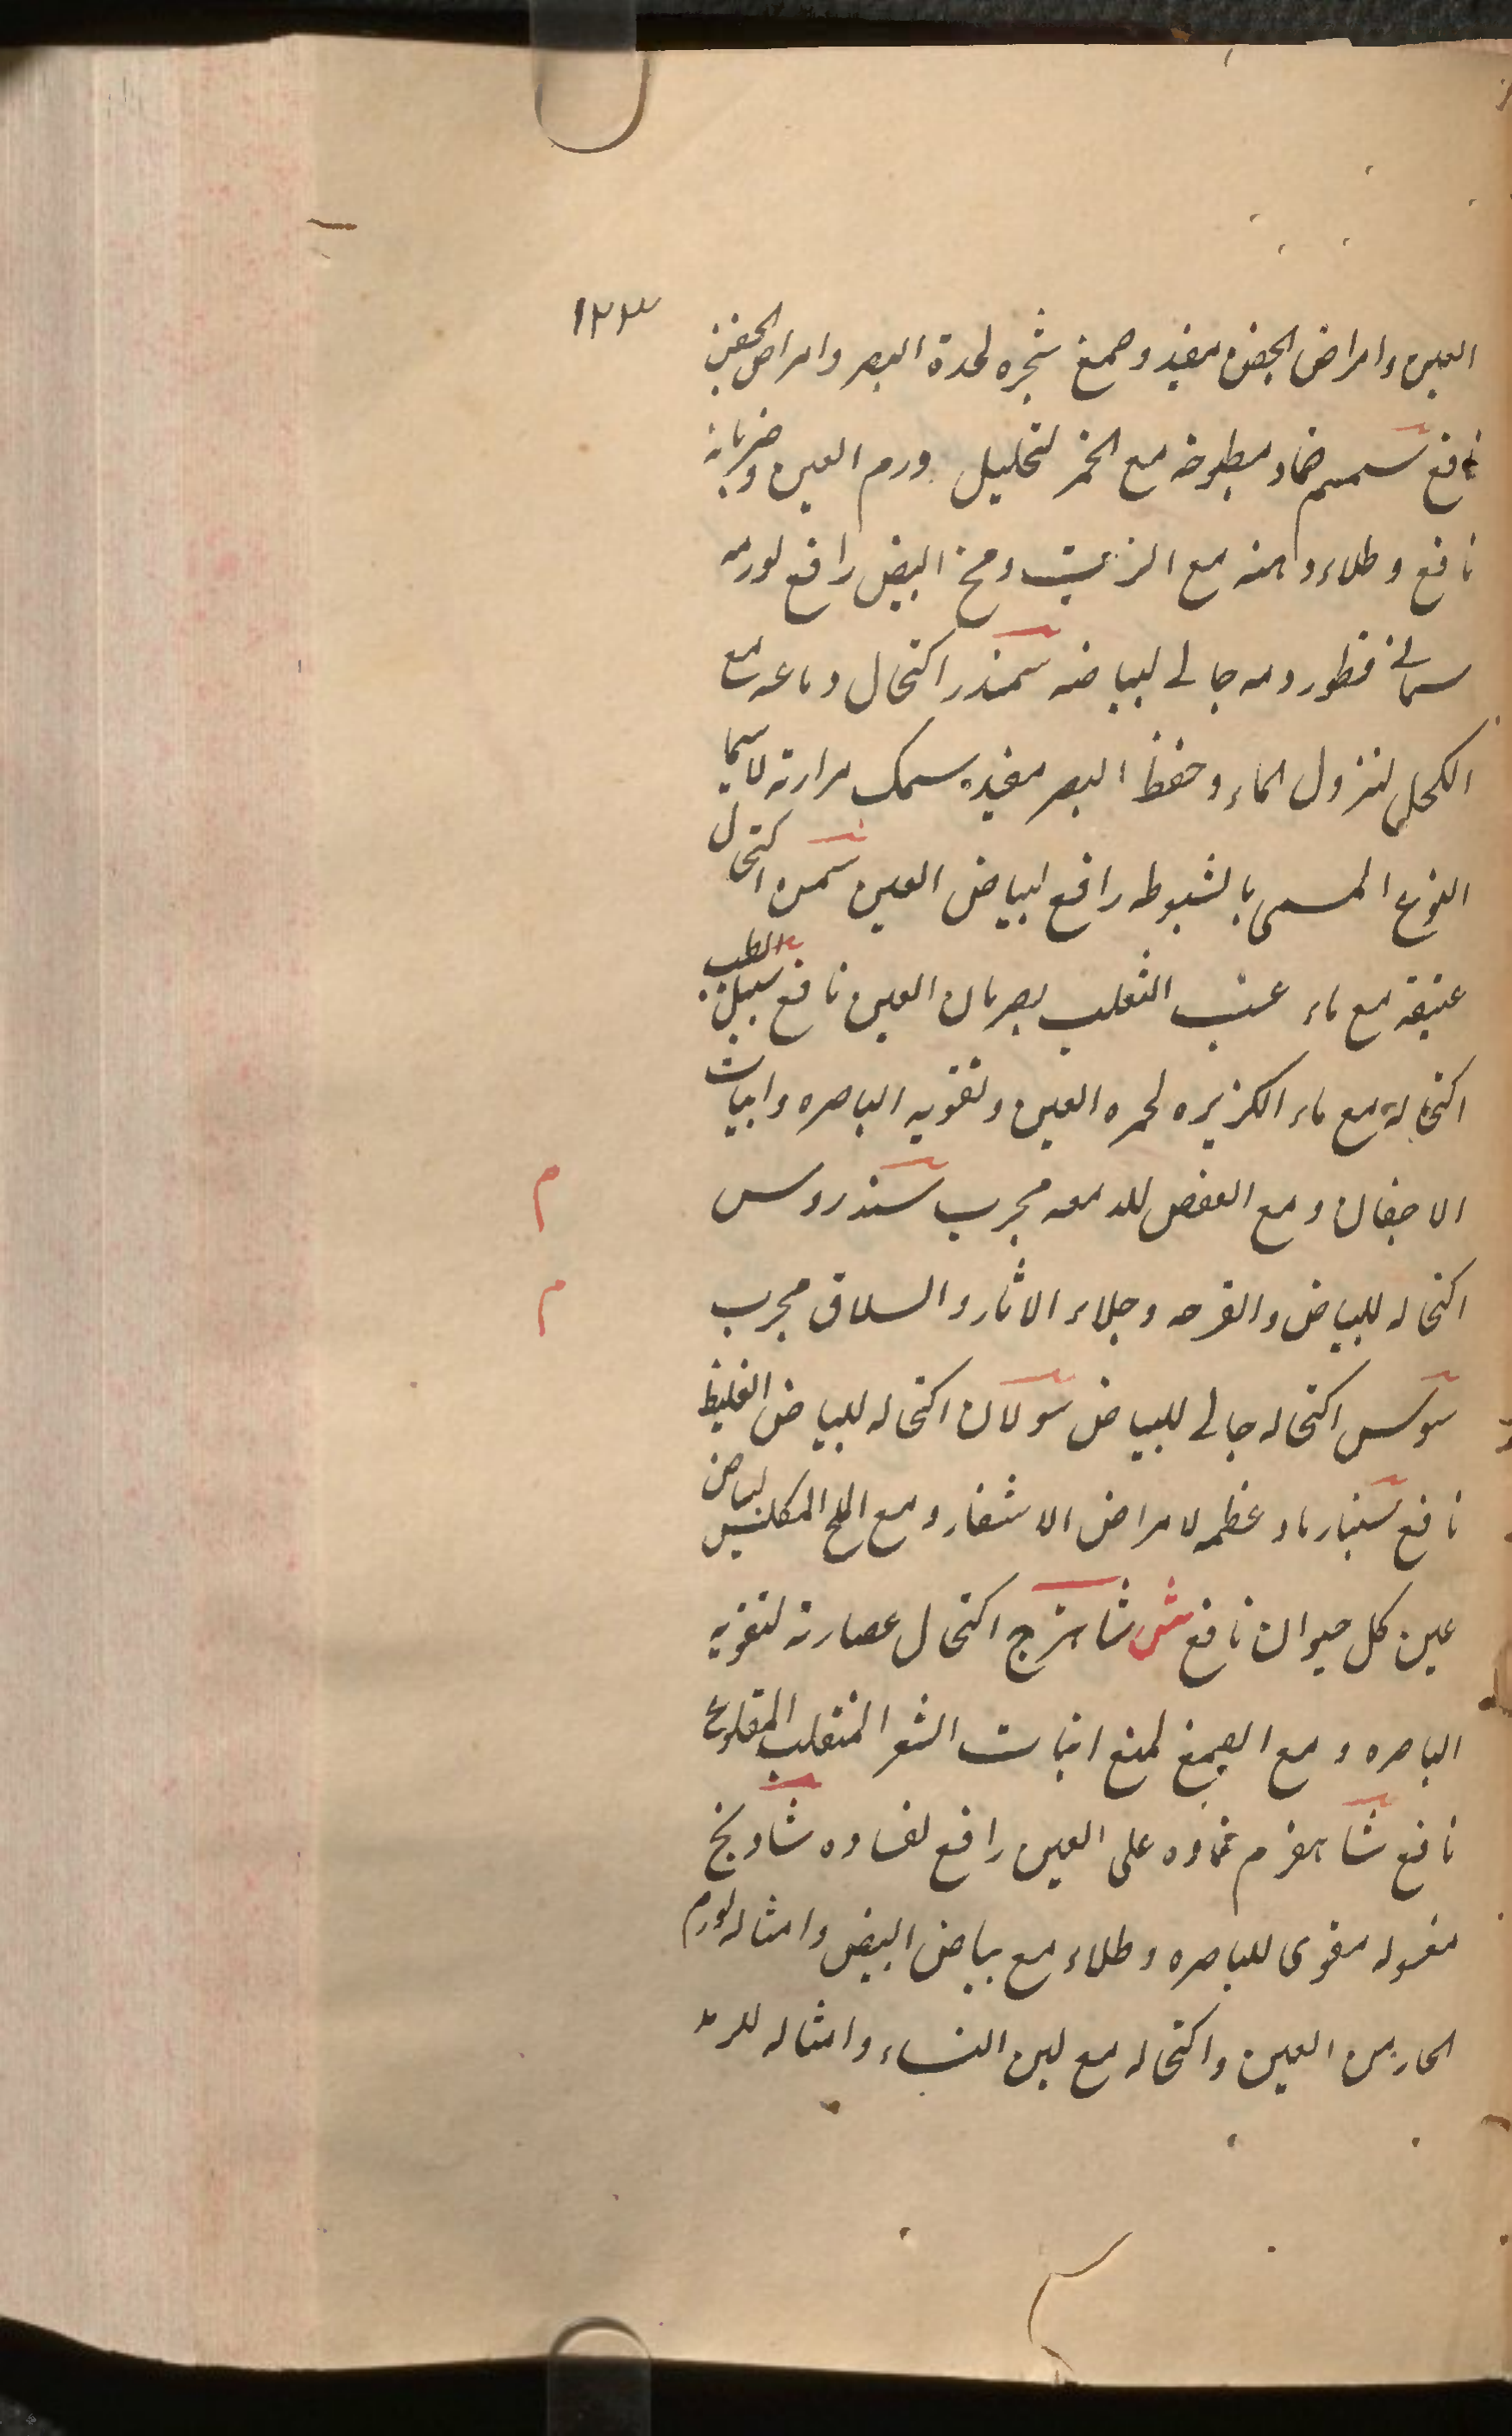 ١٢٣
العين وامراض الجفن مفيد وصمغ شجره لحدة البصر وامراض الجفن
نافع سمسم ضماد مطبوخه مع الخمر لتحليل ورم العين وضربانه
نافع وطلاء دهنه مع الزيت ومخ البيض رافع لورمه
سمانى قطور دمه جالى لبياضه سمندر اكتحال دماغه مع
الكحل لنزول الماء وحفظ البصر مفيد سمك مرارته لاسيما
النوع المسمى بالشبوطه رافع لبياض العين سمن اكتحال
عتيقه مع ماء عنب الثعلب لضربان العين نافع سنبل الطيب
اكتحاله مع ماء الكزبره لحمره العين وتقويه الباصره وانبات
الاجفان ومع العفص للدمعه مجرب سندروس
م
اكتحاله للبياض والقرحه وجلاء الاثار والسلاق مجرب
م
سوس اكتحاله جالى للبياض سولان اكتحاله للبياض الغليظ
نافع رماد عظمه لامراض الاشفار ومع الملح المكلس لبياض
عين كل حيوان نافع ش شاهترج اكتحال عصارته لتقويه
الباصره ومع الصمغ لمنع انبات الشعر المنقلب المقلوع
نافع شاهفرم ضماده على العين رافع لفساده شادنج
مغسوله مقوى للباصره وطلاء مع بياض البيض وامثاله لورم
الحار من العين واكتحاله مع لبن النساء وامثاله للرمد